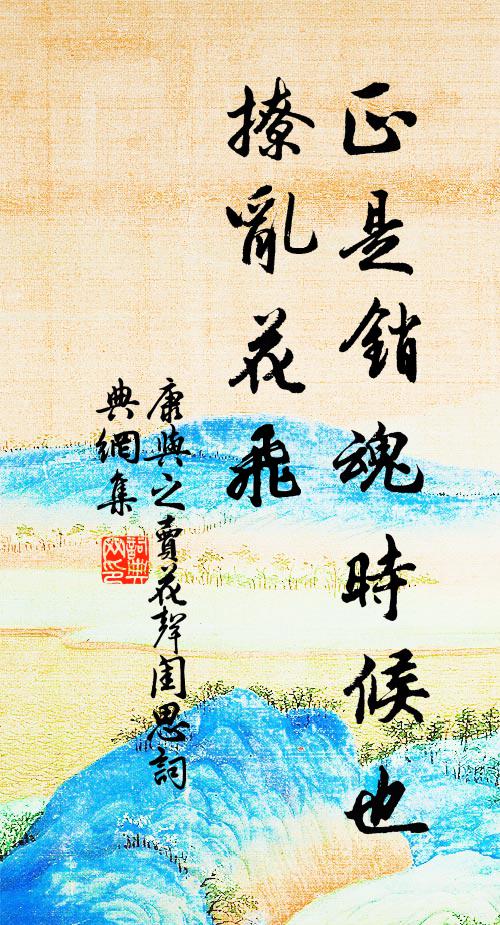 正是銷魂時候也
撩亂花飛
康與之賣花聲閨思詞
典網集
詞典
网印